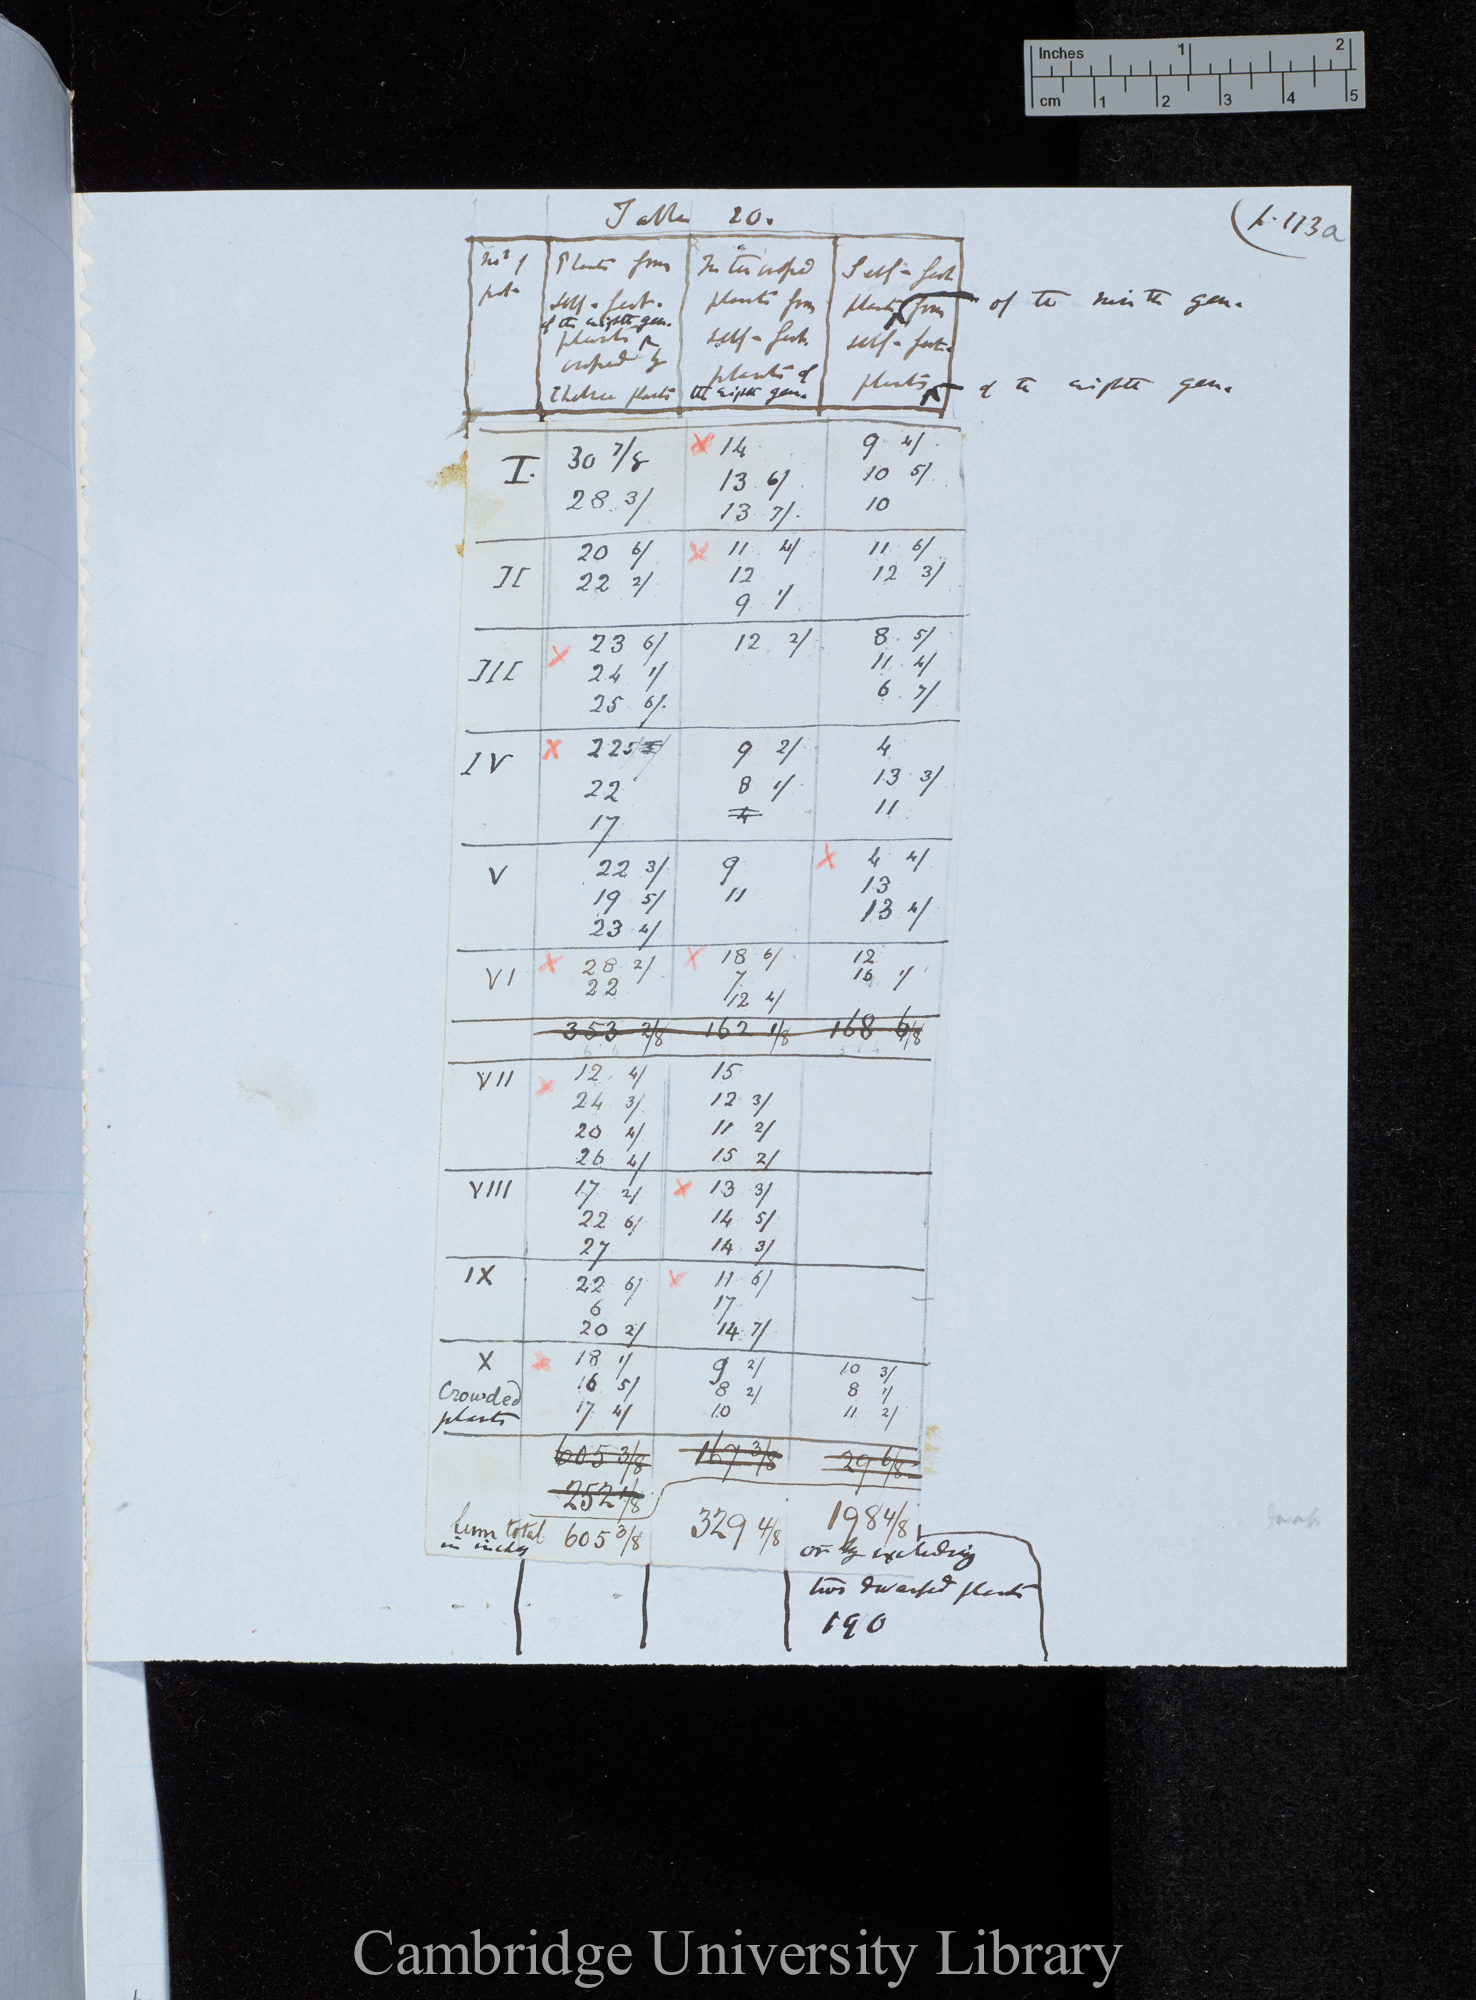 Inches 1 2
cm 1 2 3 4 5
p. 113a
Table 20.
No of pot.
Plants from self-fert. plants of the eighth gen. crossed by Chelsea plants
Intercrossed plants from self-fert. plants of the eighth gen.
Self-fert. plants of the ninth gen. from self-fert. plants of the eighth gen.
I. 30 7/8 X 14 9 4/
28 3/ 13 6/ 10 5/
13 7/ 10
II 20 6/ X 11 4/ 11 6/
22 2/ 12 12 3/
9 1/
III X 23 6/ 12 2/ 8 5/
24 1/ 11 4/
25 6/ 6 7/
IV X 22 5/ 9 2/ 4
22 8 1/ 13 3/
17 4 11
V 22 3/ 9 X 4 4/
19 5/ 11 13
23 4/ 13 4/
VI X 28 2/ X 18 6/ 12
22 7 16 1/
12 4/
353 2/8 162 1/8 168 6/8
VII X 12 4/ 15
24 3/ 12 3/
20 4/ 11 2/
26 4/ 15 2/
VIII 17 2/ X 13 3/
22 6/ 14 5/
27 14 3/
IX 22 6/ X 11 6/
6 17
20 2/ 14 7/
X X 18 1/ 9 2/ 10 3/
Crowded 16 5/ 8 2/ 8 1/
plants 17 4/ 10 11 2/
605 3/8 167 3/8 29 6/8
252 1/8
Sum total in inches 605 3/8 329 4/8 198 4/8
or by excluding
two dwarfed plants
190
Cambridge University Library